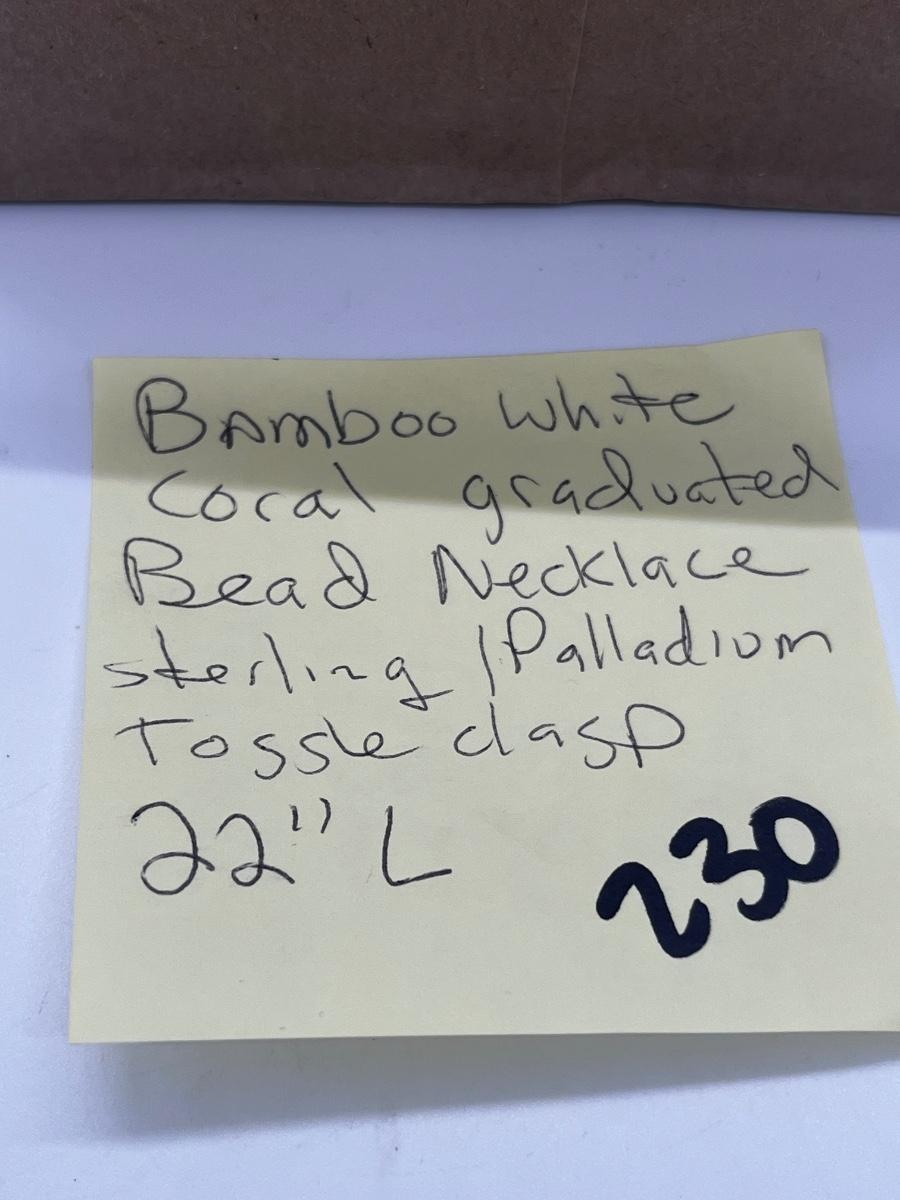 Bamboo white
coral graduated
Bead Necklace
sterling / Palladium
Toggle clasp
22" L
230